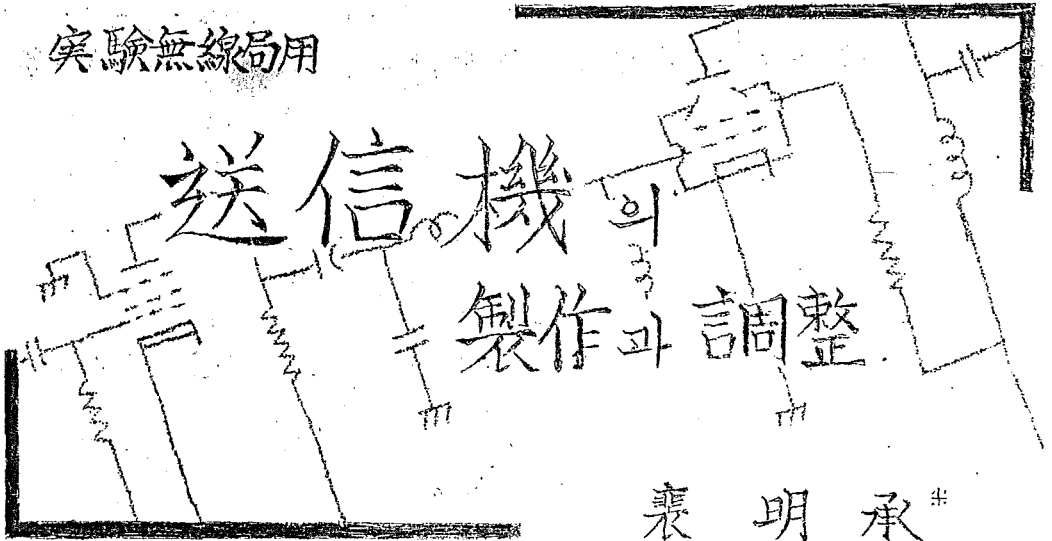 実験無線局用
送信機의
製作과 調整
裵明承*